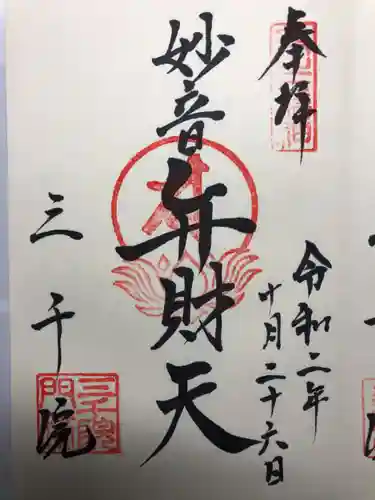 奉拝
令和二年
十月二十六日
妙音
弁財天
三千院
三千院
門